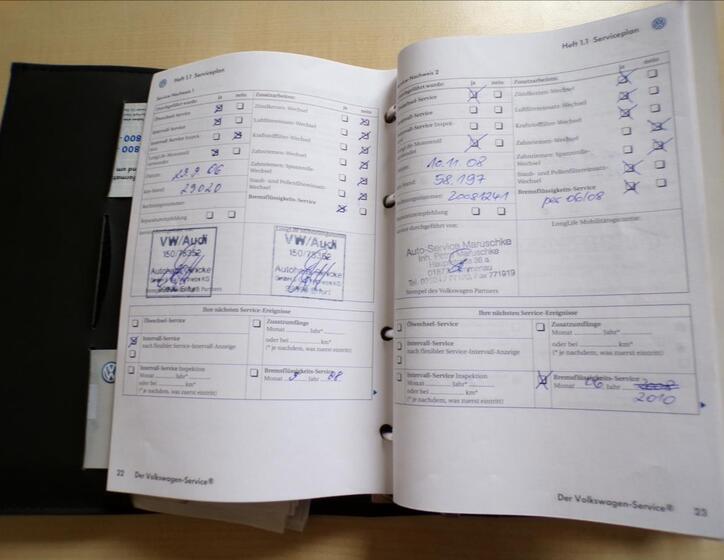 800
800
Heft 1.1 Serviceplan
Service-Nachweis 1
Durchgeführt wurde: ja nein
Ölwechsel-Service
Intervall-Service
Intervall-Service Inspek-
tion
LongLife-Motorenöl
verwendet
Datum: 29.9 06
km-Stand: 29020
Rechnungsnummer:
Reparaturempfehlung
Zusatzarbeiten: ja nein
Zündkerzen-Wechsel
Luftfiltereinsatz-Wechsel
Kraftstofffilter-Wechsel
Zahnriemen-Wechsel
Zahnriemen-Spannrolle-
Wechsel
Staub- und Pollenfiltereinsatz-
Wechsel
Bremsflüssigkeits-Service
VW/Audi
150/75352
VW/Audi
150/75352
Ihre nächsten Service-Ereignisse
Ölwechsel-Service
Intervall-Service
nach flexibler Service-Intervall-Anzeige
Intervall-Service Inspektion
Monat Jahr*
oder bei km*
(* je nachdem, was zuerst eintritt)
Zusatzumfänge
Monat Jahr*
oder bei km*
(* je nachdem, was zuerst eintritt)
Bremsflüssigkeits-Service
Monat 9 Jahr 08
22 Der Volkswagen-Service®
Heft 1.1 Serviceplan
Service-Nachweis 2
Durchgeführt wurde: ja nein
Ölwechsel-Service
Intervall-Service
Intervall-Service Inspek-
tion
LongLife-Motorenöl
verwendet
10.11.08
km-Stand: 58.197
20081241
Reparaturempfehlung
Service durchgeführt von:
Zusatzarbeiten: ja nein
Zündkerzen-Wechsel
Luftfiltereinsatz-Wechsel
Kraftstofffilter-Wechsel
Zahnriemen-Wechsel
Zahnriemen-Spannrolle-
Wechsel
Staub- und Pollenfiltereinsatz-
Wechsel
Bremsflüssigkeits-Service
per 06/08
LongLife Mobilitätsgarantie:
Auto-Service Maruschke
Stempel des Volkswagen Partners
Ihre nächsten Service-Ereignisse
Ölwechsel-Service
Intervall-Service
nach flexibler Service-Intervall-Anzeige
Intervall-Service Inspektion
Monat Jahr*
oder bei km*
(* je nachdem, was zuerst eintritt)
Zusatzumfänge
Monat Jahr*
oder bei km*
(* je nachdem, was zuerst eintritt)
Bremsflüssigkeits-Service
Monat 06 Jahr 2008
2010
Der Volkswagen-Service® 23